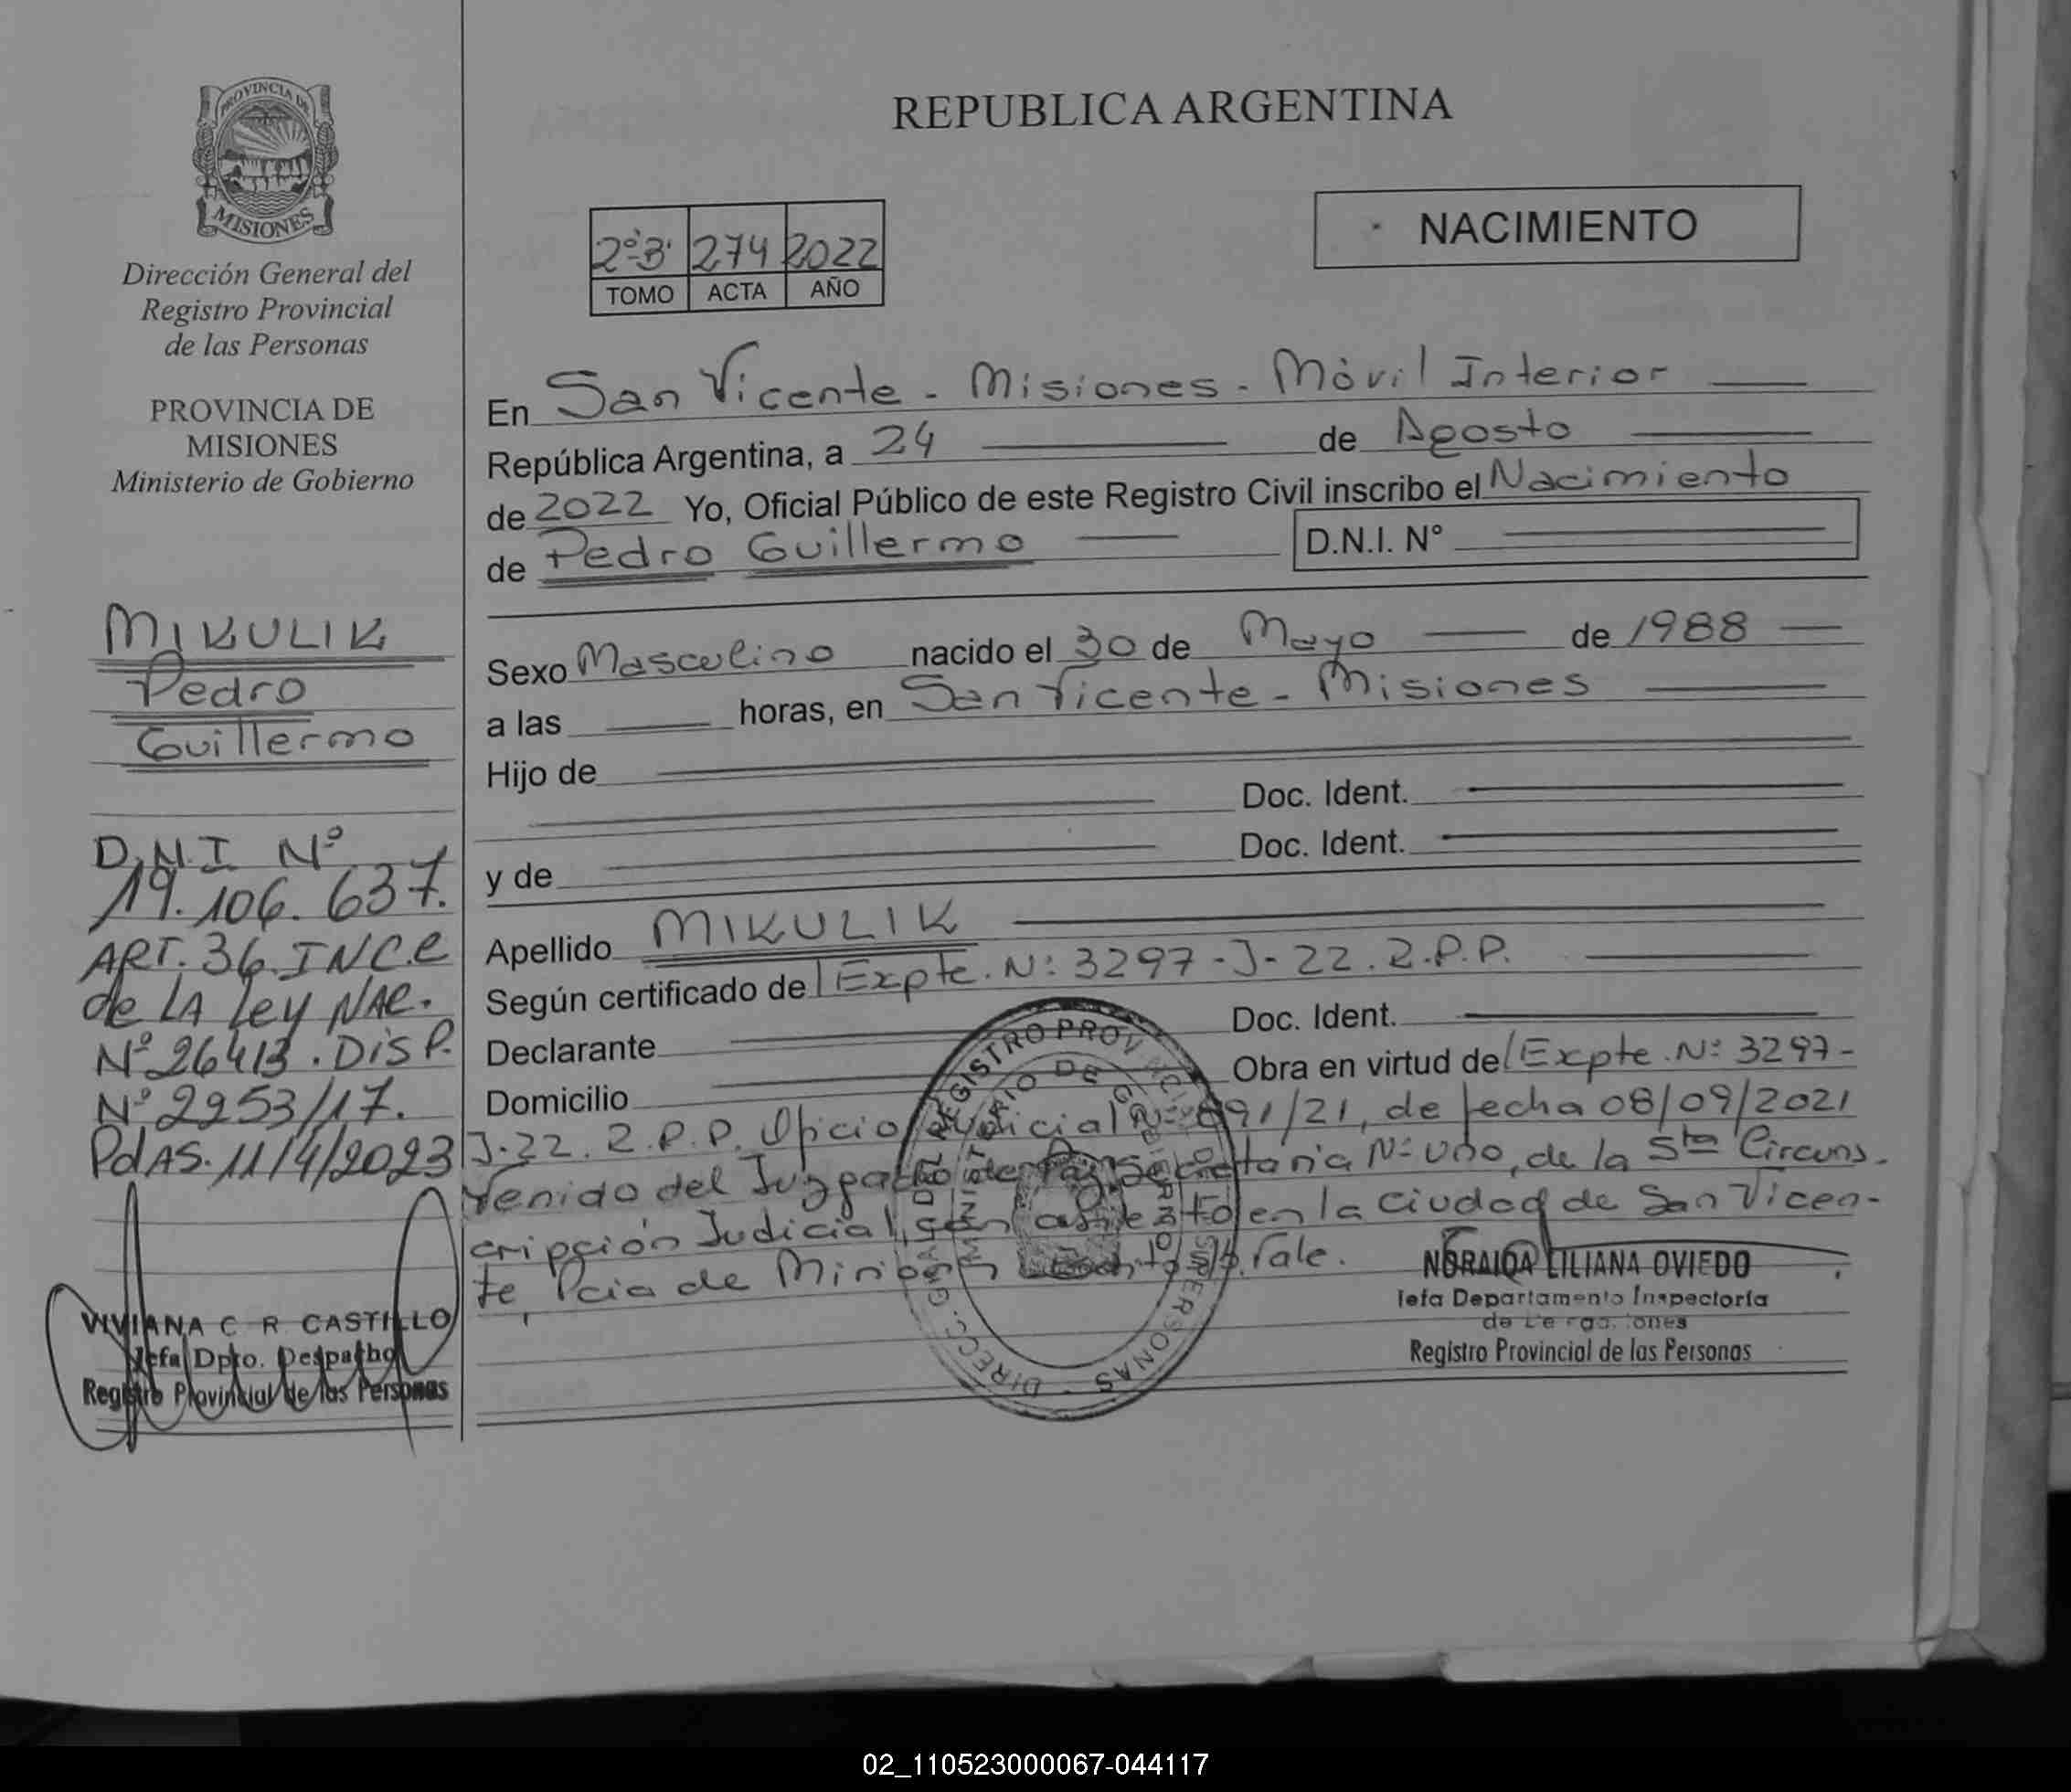 PROVINCIA DE
MISIONES
Dirección General del
Registro Provincial
de las Personas
PROVINCIA DE
MISIONES
Ministerio de Gobierno
MIKULIK
Pedro
Guillermo
D.N.I Nº
19.106.637.
ART. 36. INC. C
de LA Ley NAC.
Nº 26413. DISP.
Nº 2953/17.
PdAS. 11/4/2023
VIVIANA C R CASTILLO
Jefa Dpto. Despacho
Registro Provincial de las Personas
REPUBLICA ARGENTINA
2º-B 274 2022
TOMO ACTA AÑO
NACIMIENTO
En San Vicente - Misiones - Móvil Interior
República Argentina, a 24 de Agosto
de 2022 Yo, Oficial Público de este Registro Civil inscribo el Nacimiento
de Pedro Guillermo D.N.I. Nº
Sexo Masculino nacido el 30 de Mayo de 1988
a las horas, en San Vicente - Misiones
Hijo de
Doc. Ident.
Doc. Ident.
y de
Apellido MIKULIK
Según certificado de Expte. Nº 3297-J-22. R.P.P.
Doc. Ident.
Declarante
Domicilio Obra en virtud del Expte. Nº 3297-
J-22. R.P.P. Oficio Judicial Nº 891/21, de fecha 08/09/2021
Venido del Juzgado de Paz Secretaría Nº Uno, de la 5ta Circuns-
cripción Judicial, con asiento en la ciudad de San Vicen-
te, Pcia de Vale.
NORAIDA LILIANA OVIEDO
Jefa Departamento Inspectoría
de
Registro Provincial de las Personas
DIREC. GRAL. DEL REGISTRO PROVINCIAL DE LAS PERSONAS
MINISTERIO DE GOBIERNO
02_110523000067-044117